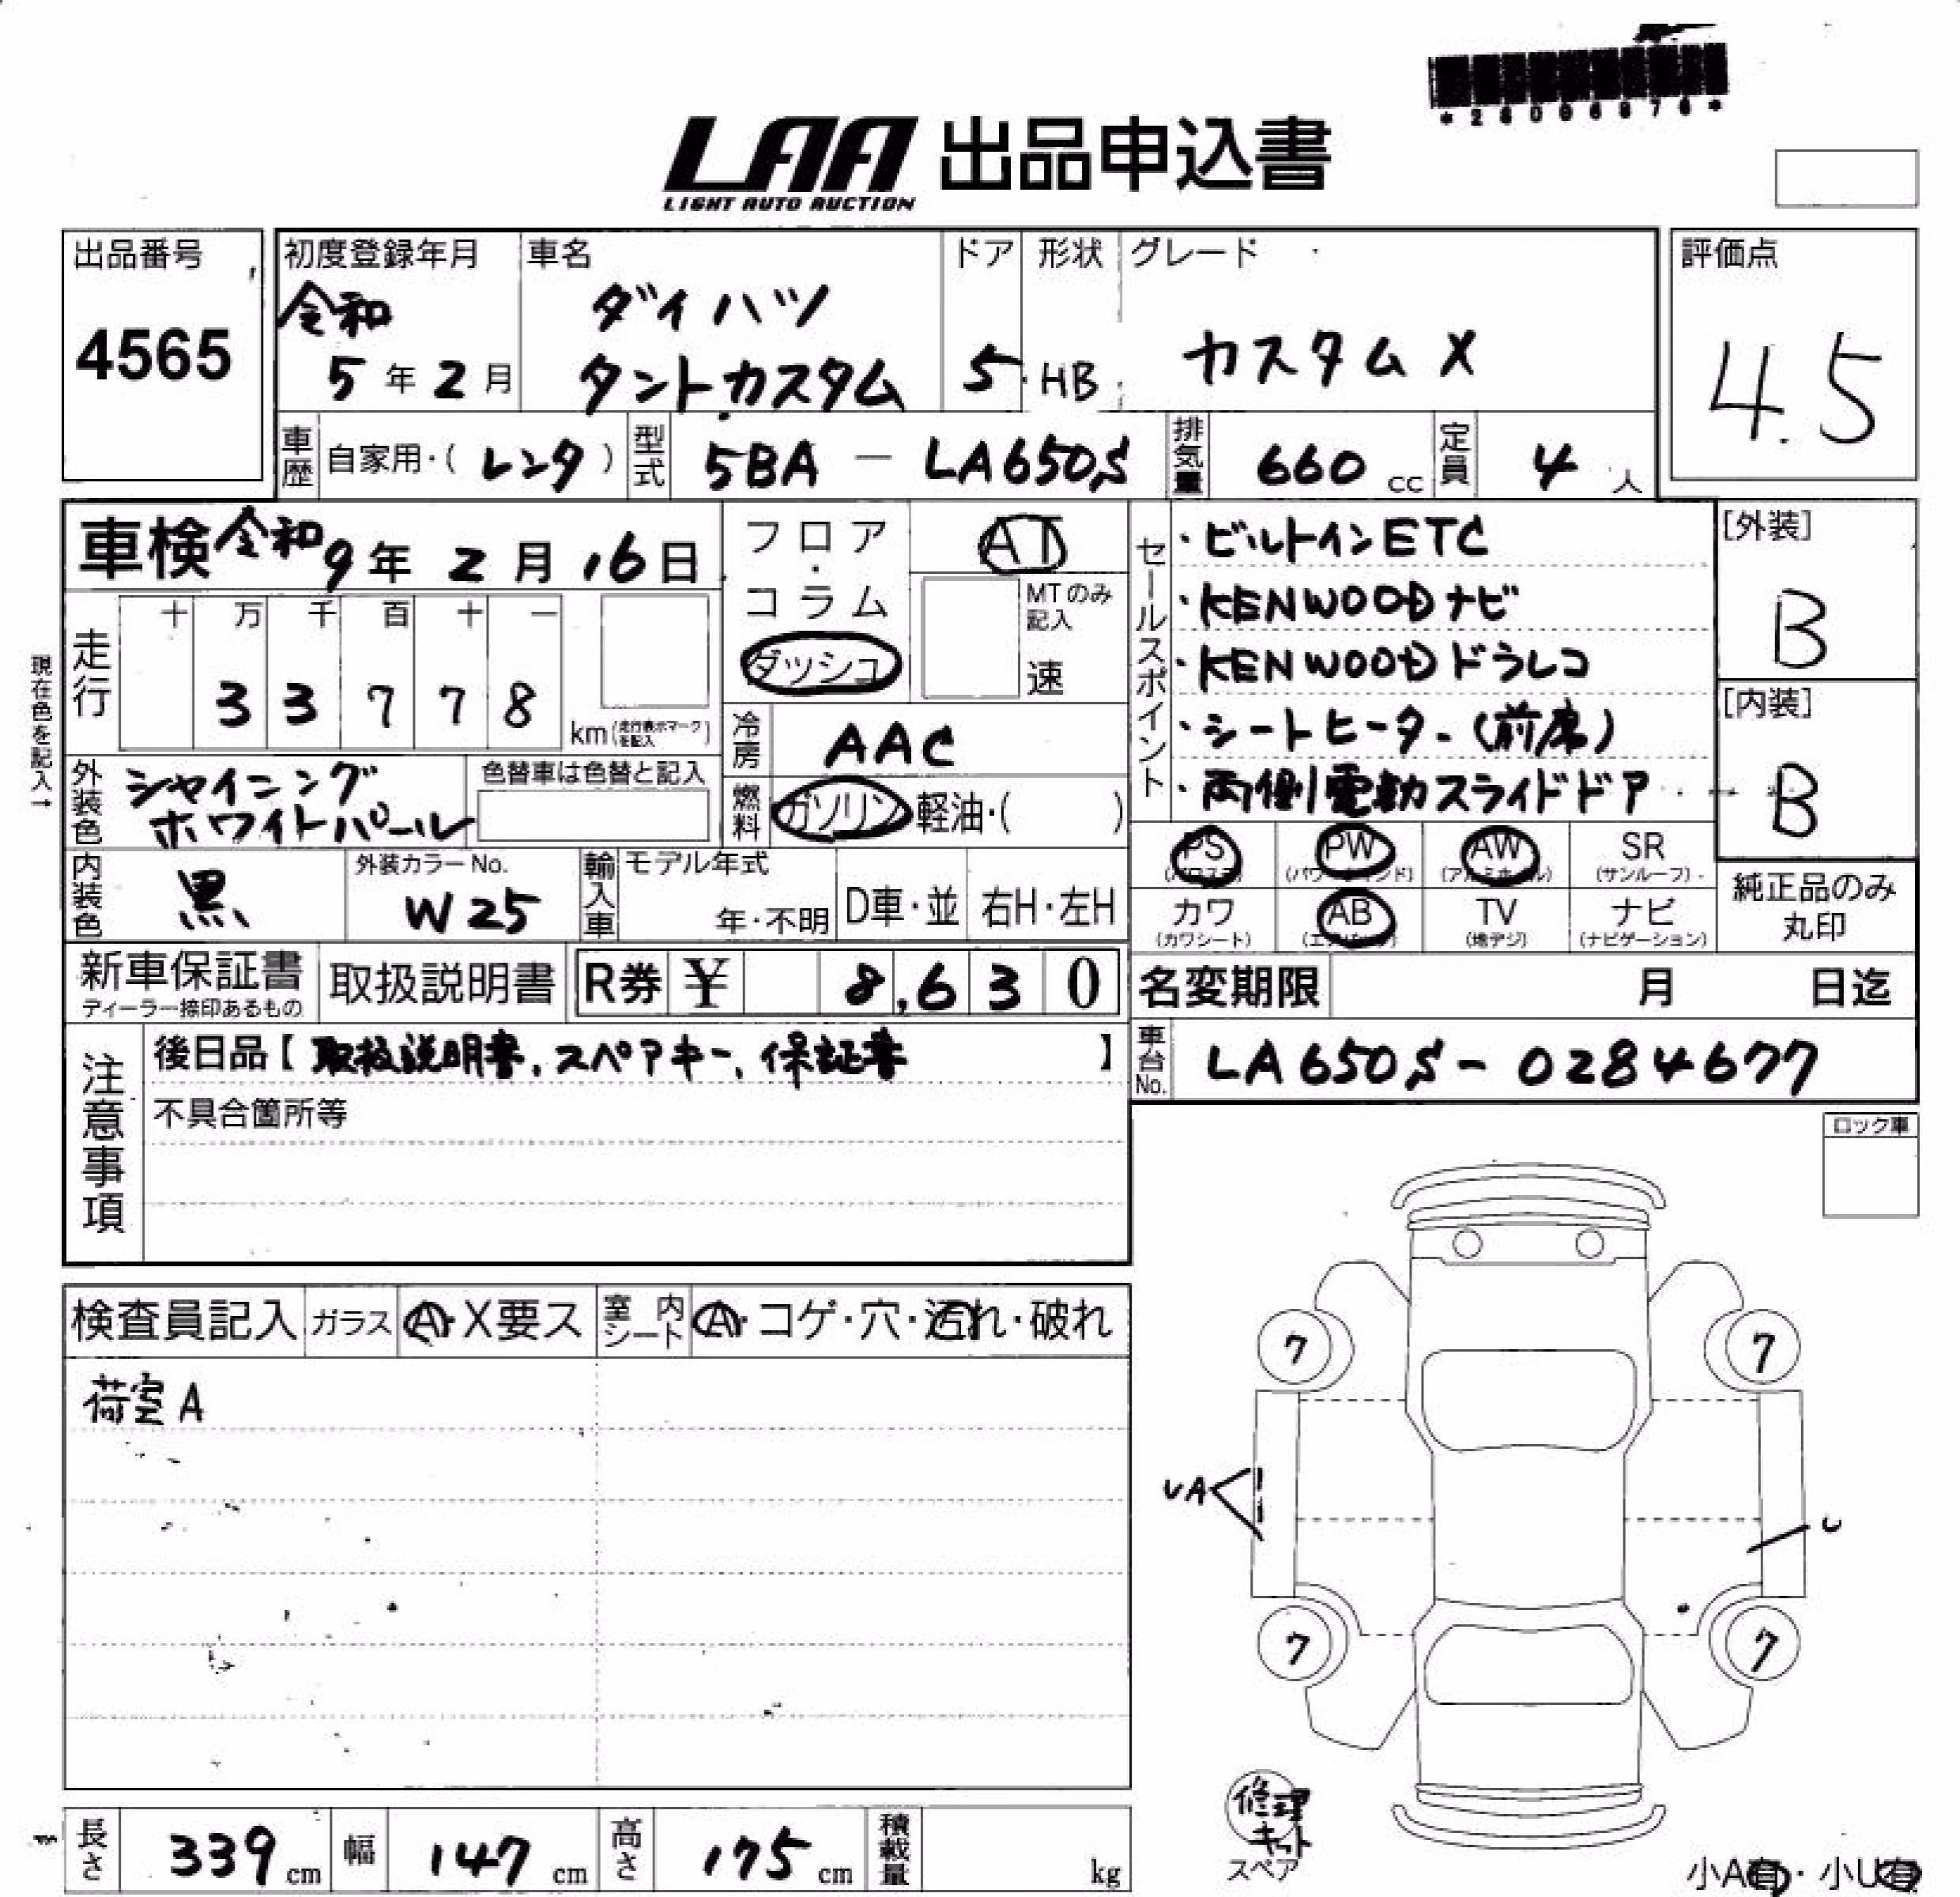 LAA 出品申込書
LIGHT AUTO AUCTION
出品番号
4565
初度登録年月
令和
5年2月
車名
ダイハツ
タントカスタム
ドア
5
形状
HB
グレード
カスタムX
評価点
4.5
車歴 自家用・(レンタ)
型式 5BA - LA650S
排気量 660 cc
定員 4人
車検 令和9年2月16日
現在色を記入→
走行
十 万 千 百 十 一
3 3 7 7 8
km(走行表示マークを記入)
フロア・コラム
ダッシュ
AT
MTのみ記入
速
冷房 AAC
燃料 ガソリン 軽油・( )
外装色 シャイニングホワイトパール
色替車は色替と記入
内装色 黒
外装カラーNo.
W25
輸入車
モデル年式
年・不明
D車・並
右H・左H
セールスポイント
・ビルトインETC
・KENWOODナビ
・KENWOODドラレコ
・シートヒーター(前席)
・両側電動スライドドア
[外装]
B
[内装]
B
PS (パワステ)
PW (パワーウインド)
AW (アルミホイル)
SR (サンルーフ)
カワ (カワシート)
AB (エアバッグ)
TV (地デジ)
ナビ (ナビゲーション)
純正品のみ
丸印
新車保証書
ディーラー捺印あるもの
取扱説明書
R券 ¥ 8,630
名変期限 月 日迄
車台No. LA650S-0284677
注意事項
後日品【取扱説明書、スペアキー、保証書】
不具合箇所等
ロック車
検査員記入
ガラス A・X要ス
室内シート A・コゲ・穴・汚れ・破れ
荷室A
7
7
UA
U
7
7
修理キット
スペア
小A有・小U有
長さ 339 cm
幅 147 cm
高さ 175 cm
積載量 kg